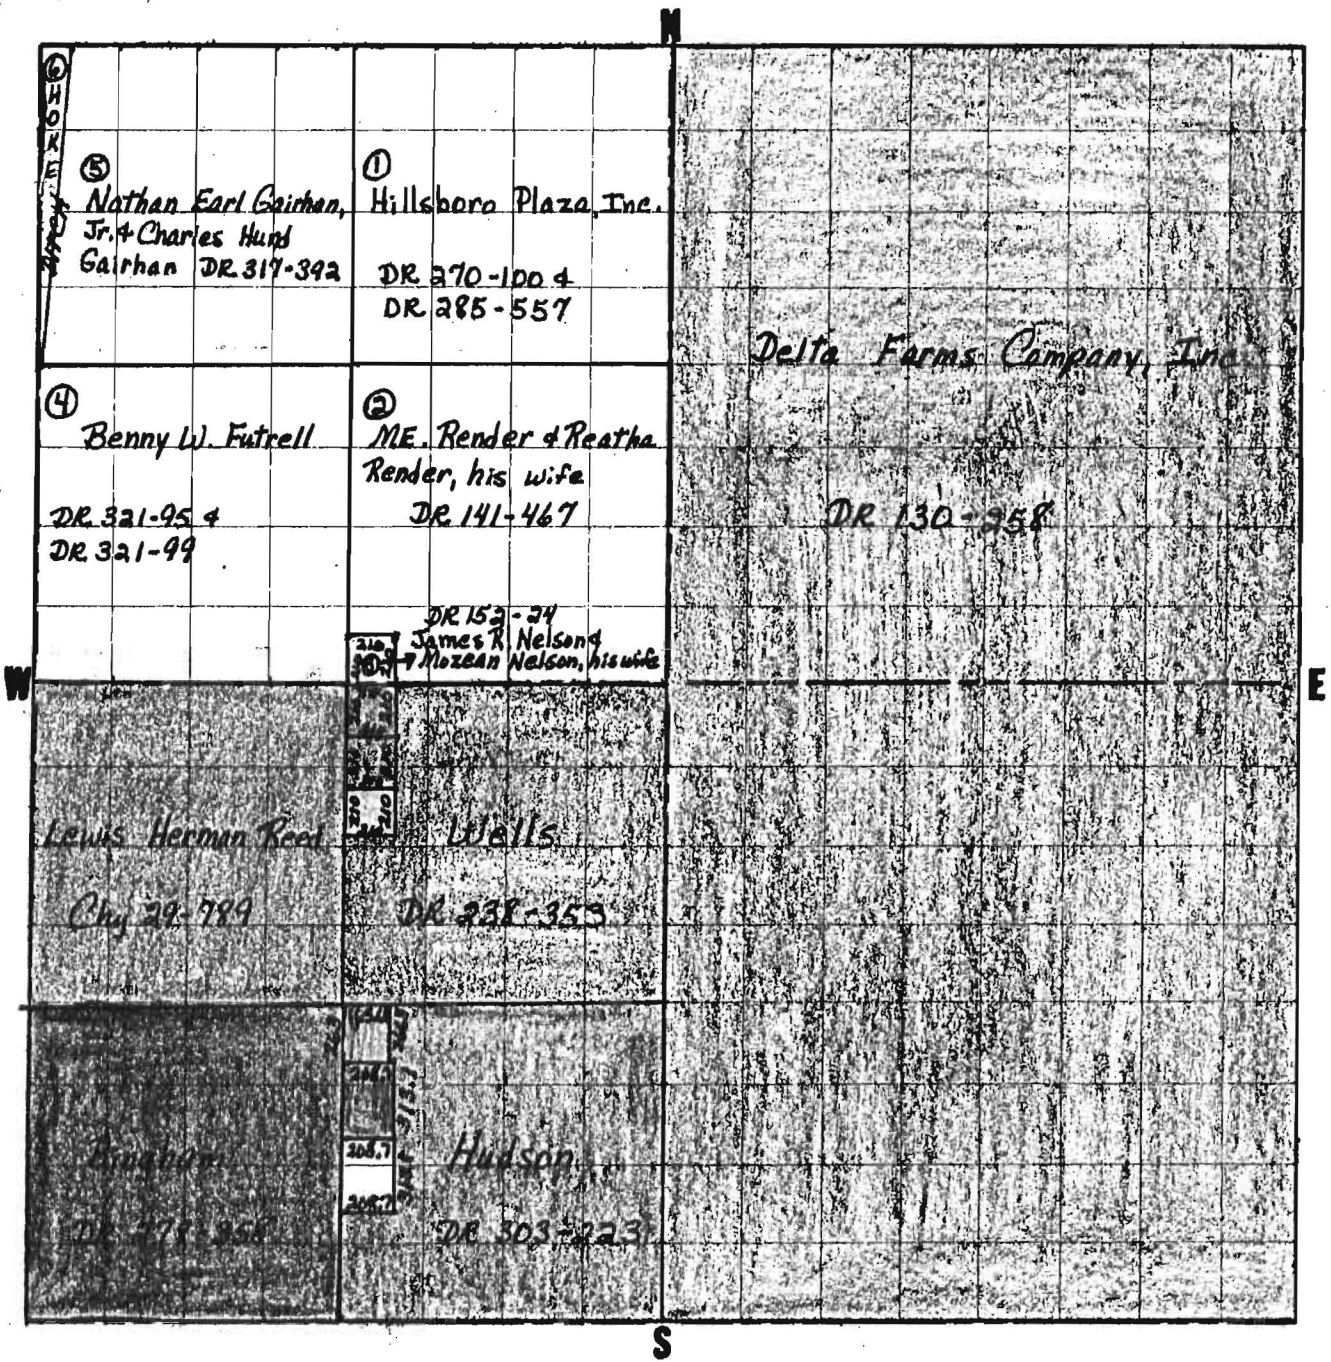 N
⑥
HOKE
⑤
Nathan Earl Gairhan,
Jr. & Charles Hurd
Gairhan DR. 317-392
①
Hillsboro Plaza, Inc.
DR 270-100 &
DR 285-557
Delta Farms Company, Inc
DR 130-258
④
Benny W. Futrell
DR 321-95 &
DR 321-99
②
M.E. Render & Reatha
Render, his wife
DR 141-467
DR 152-24
James R. Nelson &
Mozean Nelson, his wife
210
W
E
210
210
Lewis Herman Reed
Chy 29-789
Wells
DR 238-353
208.7
313.1
208.7
208.7
Hudson
DR 303-223
Bingham
DR 278-358
S